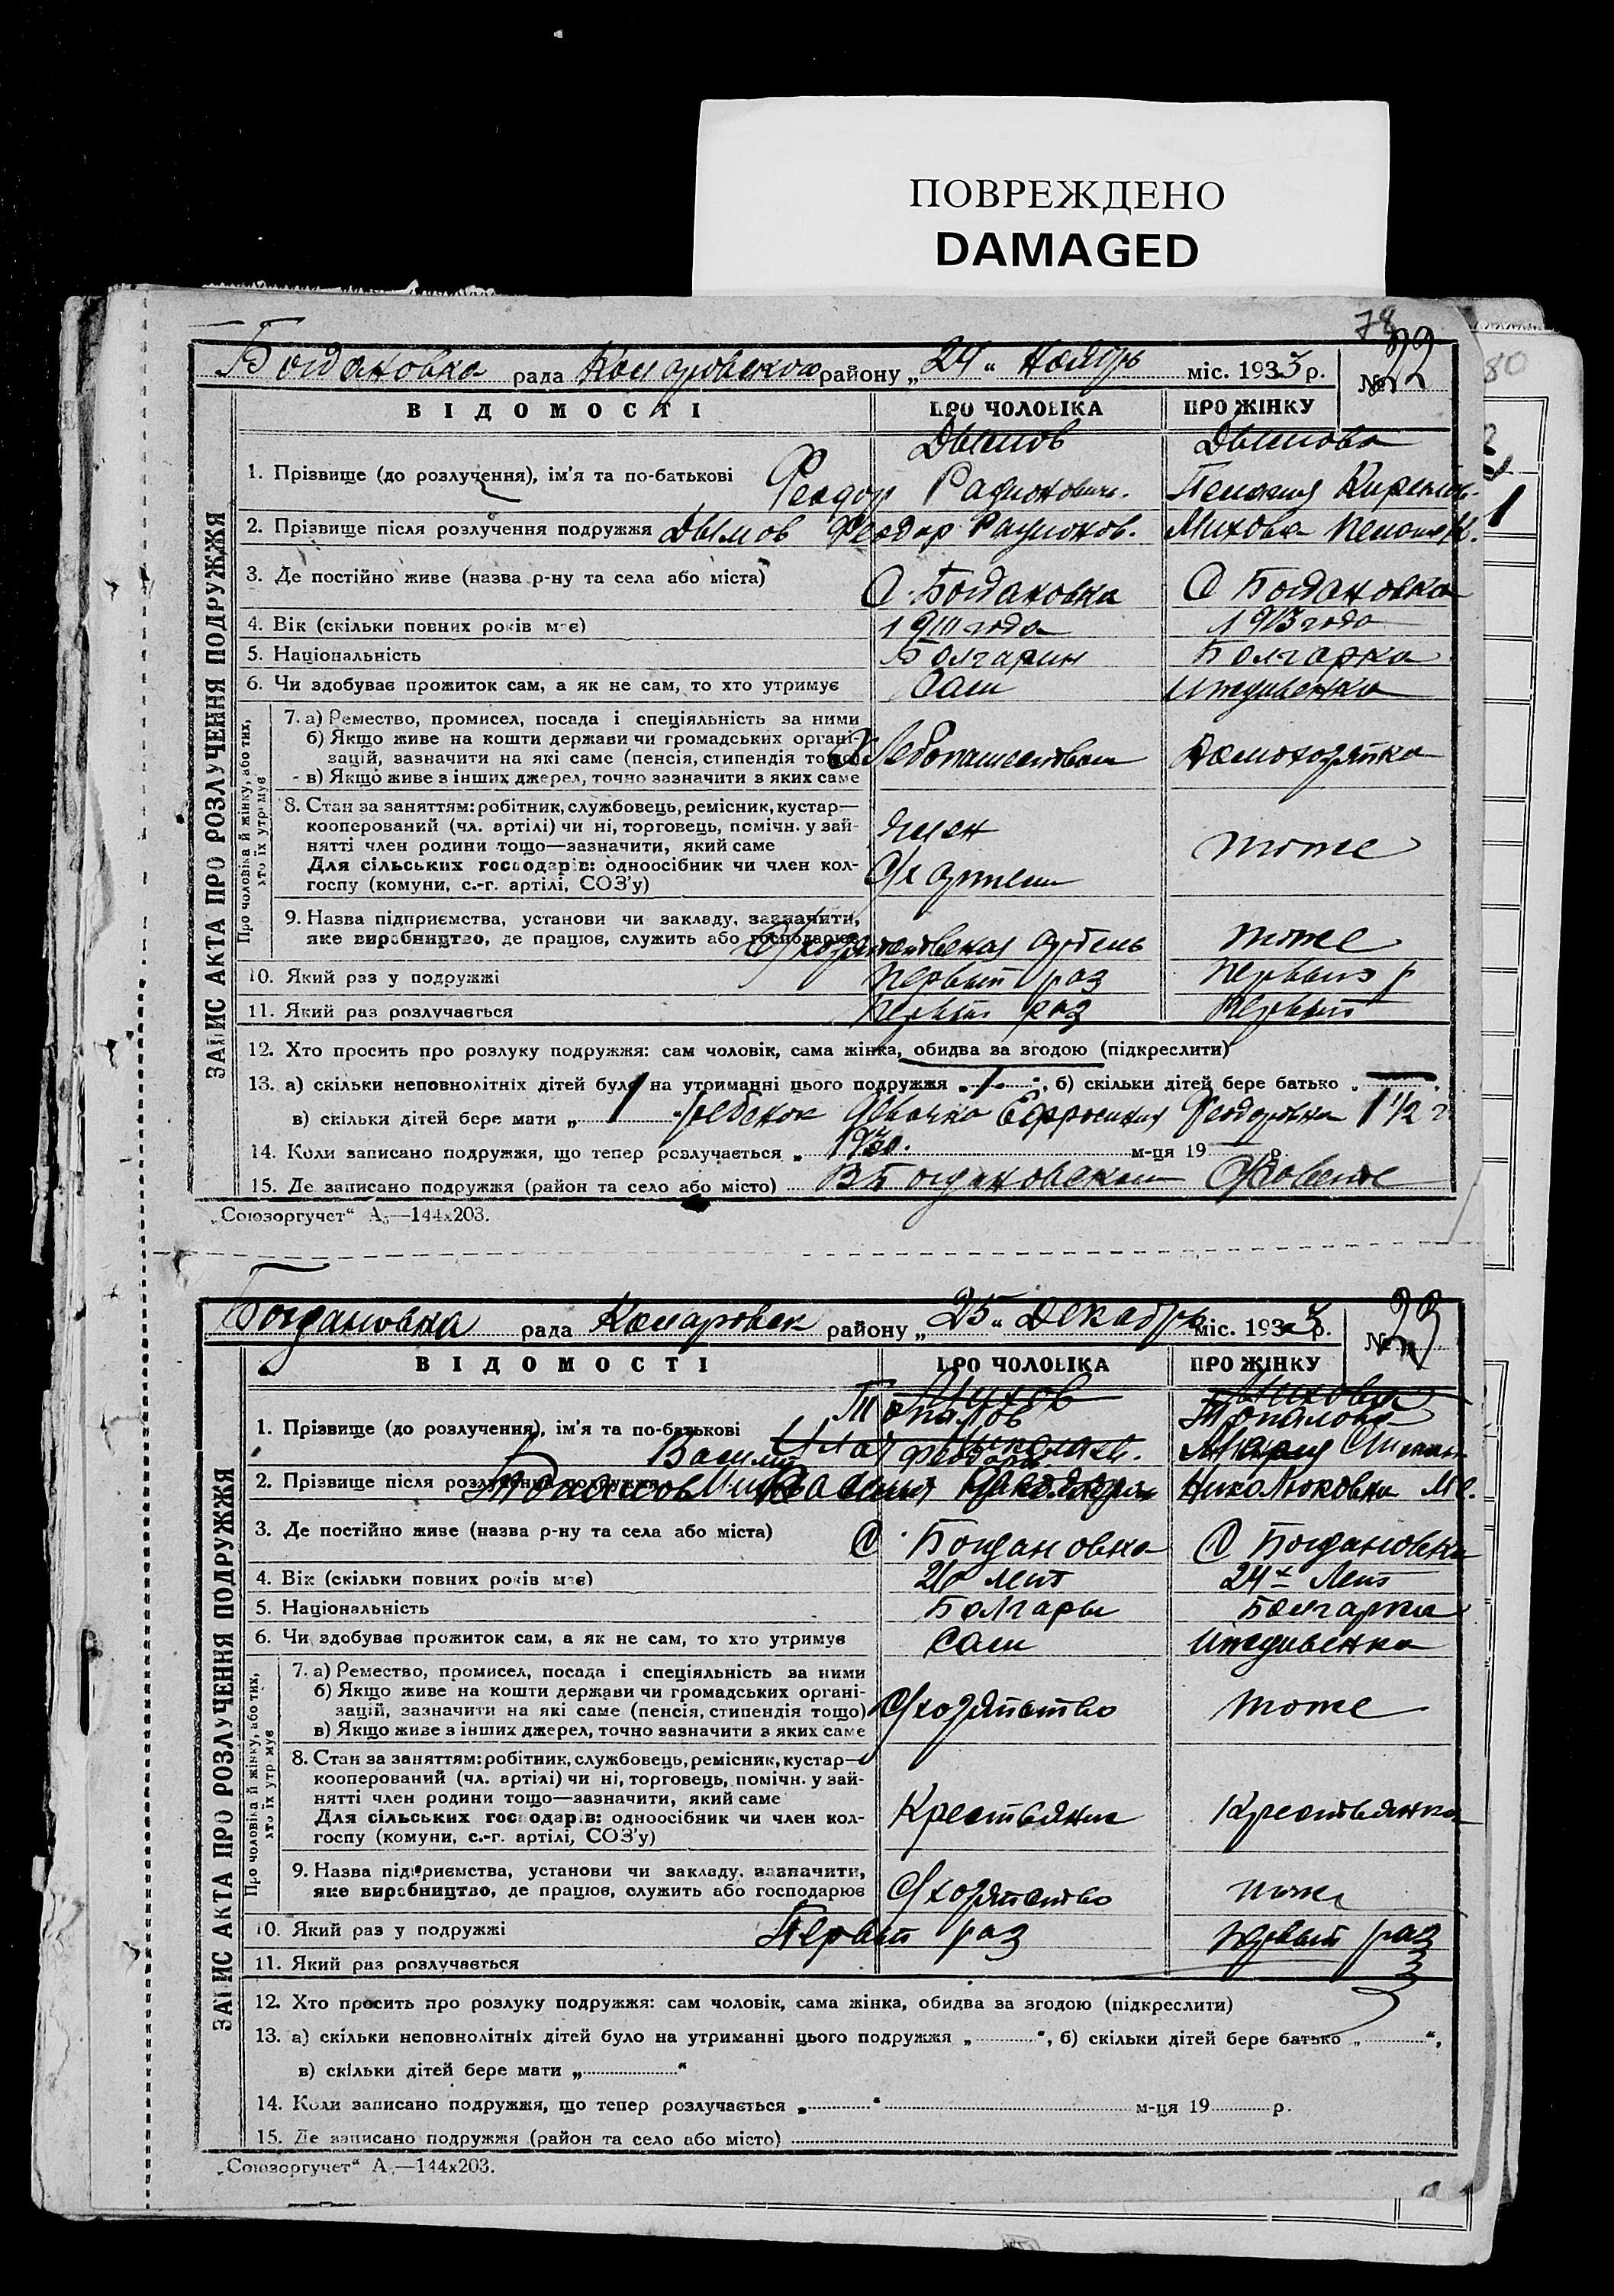 ПОВРЕЖДЕНО
DAMAGED
78
80
Богдановка рада Комаровского району „24“ Ноябрь міс. 1933 р. № 22
ВІДОМОСТІ ПРО ЧОЛОВІКА ПРО ЖІНКУ
ЗАПИС АКТА ПРО РОЗЛУЧЕННЯ ПОДРУЖЖЯ
Дымов Дымова
1. Прізвище (до розлучення), ім’я та по-батькові Феодор Радионович. Пелагия
2. Прізвище після розлучення подружжя Дымов Феодор Радионов. Михова
3. Де постійно живе (назва р-ну та села або міста) С. Богдановка С Богдановка
4. Вік (скільки повних років має) года 1913 года
5. Національність Болгарин Болгарка
6. Чи здобуває прожиток сам, а як не сам, то хто утримує Сам Иждивенка
Про чоловіка й жінку, або тих, хто їх утримує
7. а) Ремество, промисел, посада і спеціяльність за ними
б) Якщо живе на кошти держави чи громадських органі-
зацій, зазначити на які саме (пенсія, стипендія тощо)
в) Якщо живе з інших джерел, точно зазначити з яких саме
Домохозяйка
8. Стан за заняттям: робітник, службовець, ремісник, кустар—
кооперований (чл. артілі) чи ні, торговець, помічн. у зай-
нятті член родини тощо—зазначити, який саме
Для сільських господарів: одноосібник чи член кол-
госпу (комуни, с.-г. артілі, СОЗ’у)
член
С/х артели тоже
9. Назва підприємства, установи чи закладу, зазначити,
яке виробництво, де працює, служить або господарює
С/хозяйственная артель тоже
10. Який раз у подружжі первый раз первый р
11. Який раз розлучається первый раз первый
12. Хто просить про розлуку подружжя: сам чоловік, сама жінка, обидва за згодою (підкреслити)
13. а) скільки неповнолітніх дітей було на утриманні цього подружжя „1“, б) скільки дітей бере батько „—“,
в) скільки дітей бере мати „1 ребенок девочка Ефросиния Феодоровна 1 1/2 г
14. Коли записано подружжя, що тепер розлучається „ 1930. м-ця 19 р.
15. Де записано подружжя (район та село або місто) В Богдановском С/Совете
„Союзоргучет“ А₅—144х203.
Богдановка рада Комаровск району „25“ Декабрь міс. 1933 р. № 23
ВІДОМОСТІ ПРО ЧОЛОВІКА ПРО ЖІНКУ
ЗАПИС АКТА ПРО РОЗЛУЧЕННЯ ПОДРУЖЖЯ
Михов Михова
Топалов Топалова
1. Прізвище (до розлучення), ім’я та по-батькові Василий Илья Феодор Николаев. Мария
2. Прізвище після розлучення подружжя Топалов Василий
3. Де постійно живе (назва р-ну та села або міста) С. Богдановка С Богдановка
4. Вік (скільки повних років має) 26 лет 24х Лет
5. Національність Болгары Болгарка
6. Чи здобуває прожиток сам, а як не сам, то хто утримує Сам Иждивенка
Про чоловіка й жінку, або тих, хто їх утримує
7. а) Ремество, промисел, посада і спеціяльність за ними
б) Якщо живе на кошти держави чи громадських органі-
зацій, зазначити на які саме (пенсія, стипендія тощо)
в) Якщо живе з інших джерел, точно зазначити з яких саме
С/хозяйство тоже
8. Стан за заняттям: робітник, службовець, ремісник, кустар—
кооперований (чл. артілі) чи ні, торговець, помічн. у зай-
нятті член родини тощо—зазначити, який саме
Для сільських господарів: одноосібник чи член кол-
госпу (комуни, с.-г. артілі, СОЗ’у)
Крестьянин Крестьянка
9. Назва підприємства, установи чи закладу, зазначити,
яке виробництво, де працює, служить або господарює
С/хозяйство тоже
10. Який раз у подружжі Первый раз первый раз
11. Який раз розлучається
12. Хто просить про розлуку подружжя: сам чоловік, сама жінка, обидва за згодою (підкреслити)
13. а) скільки неповнолітніх дітей було на утриманні цього подружжя „ “, б) скільки дітей бере батько „ “,
в) скільки дітей бере мати „ “
14. Коли записано подружжя, що тепер розлучається „ “ м-ця 19 р.
15. Де записано подружжя (район та село або місто)
„Союзоргучет“ А₅—144х203.